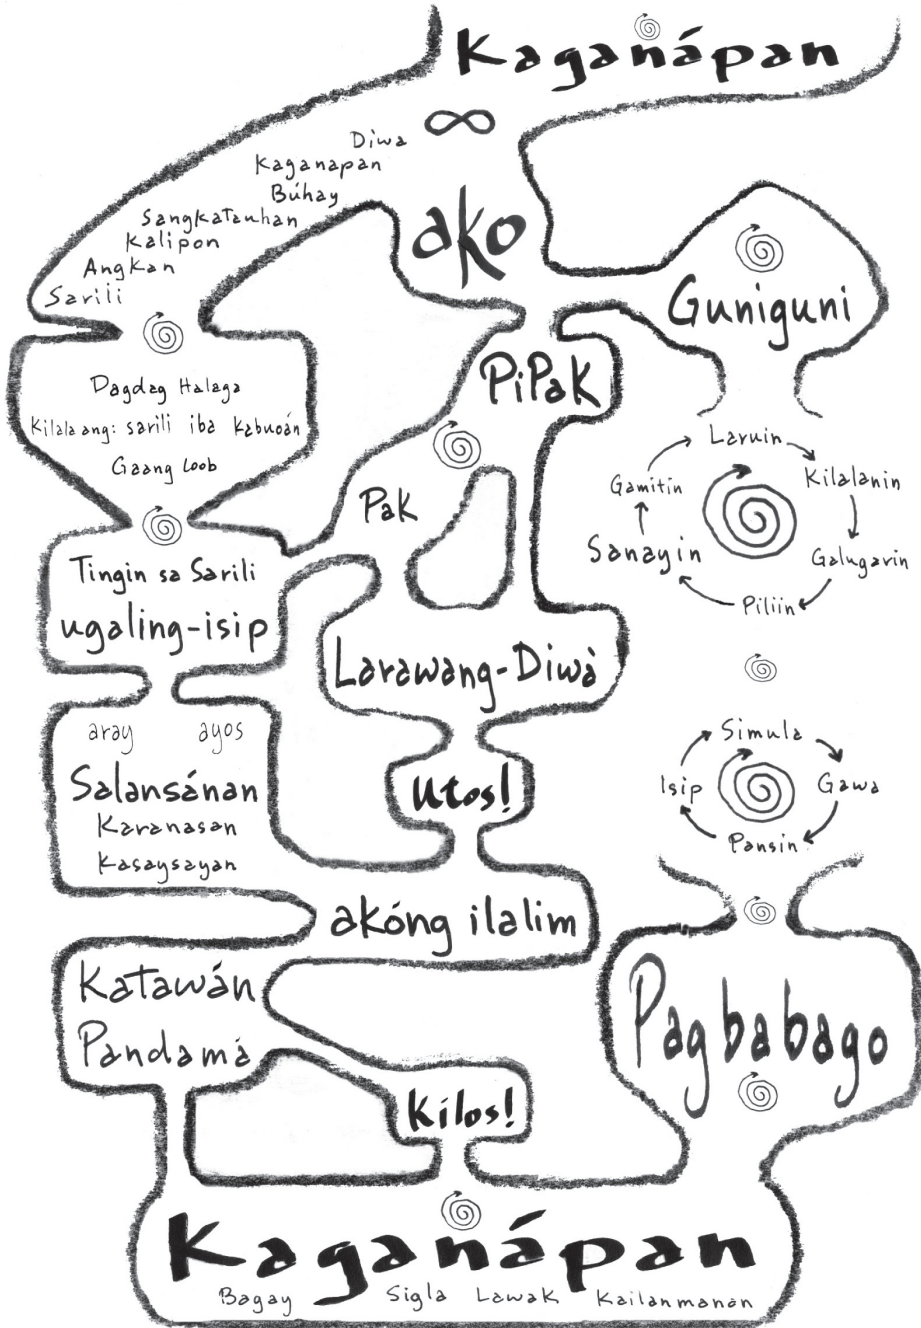 Kaganápan
∞
Diwa
Kaganapan
Búhay
Sangkatauhan
Kalipon
Angkan
Sarili
ako
Guniguni
Dagdag Halaga
Kilala ang: sarili iba Kabuoán
Gaang Loob
PiPaK
Pak
Laruin
Kilalanin
Galugarin
Piliin
Sanayin
Gamitin
Tingin sa Sarili
ugaling-isip
Larawang-Diwà
aray ayos
Salansánan
Karanasan
Kasaysayan
Utos!
Simula
Gawa
Pansin
Isip
akóng ilalim
Katawán
Pandamá
Kilos!
Pagbabago
Kaganápan
Bagay Sigla Lawak Kailanmanan